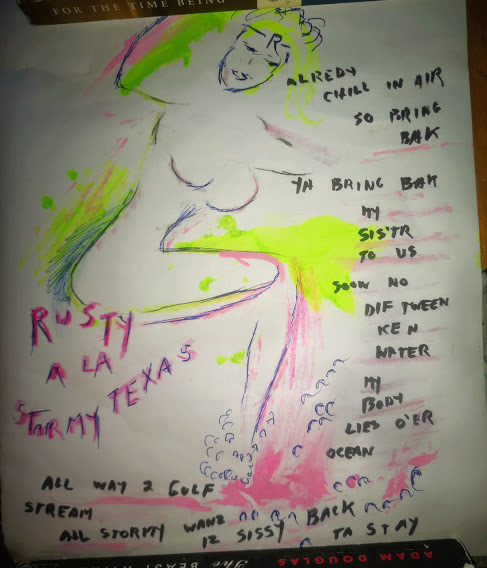 FOR THE TIME BEING
ALREDY
CHILL IN AIR
SO BRING
BAK
YA BRING BAK
MY
SIS'TR
TO US
SOON NO
DIF TWEEN
KEN
WATER
MY
BODY
LIES O'ER
OCEAN
RUSTY
A LA
STORMY TEXAS
ALL WAY 2 GOLF
STREAM
ALL STORMY WANZ
IZ SISSY BACK
TA STAY
ADAM DOUGLAS The BEAST